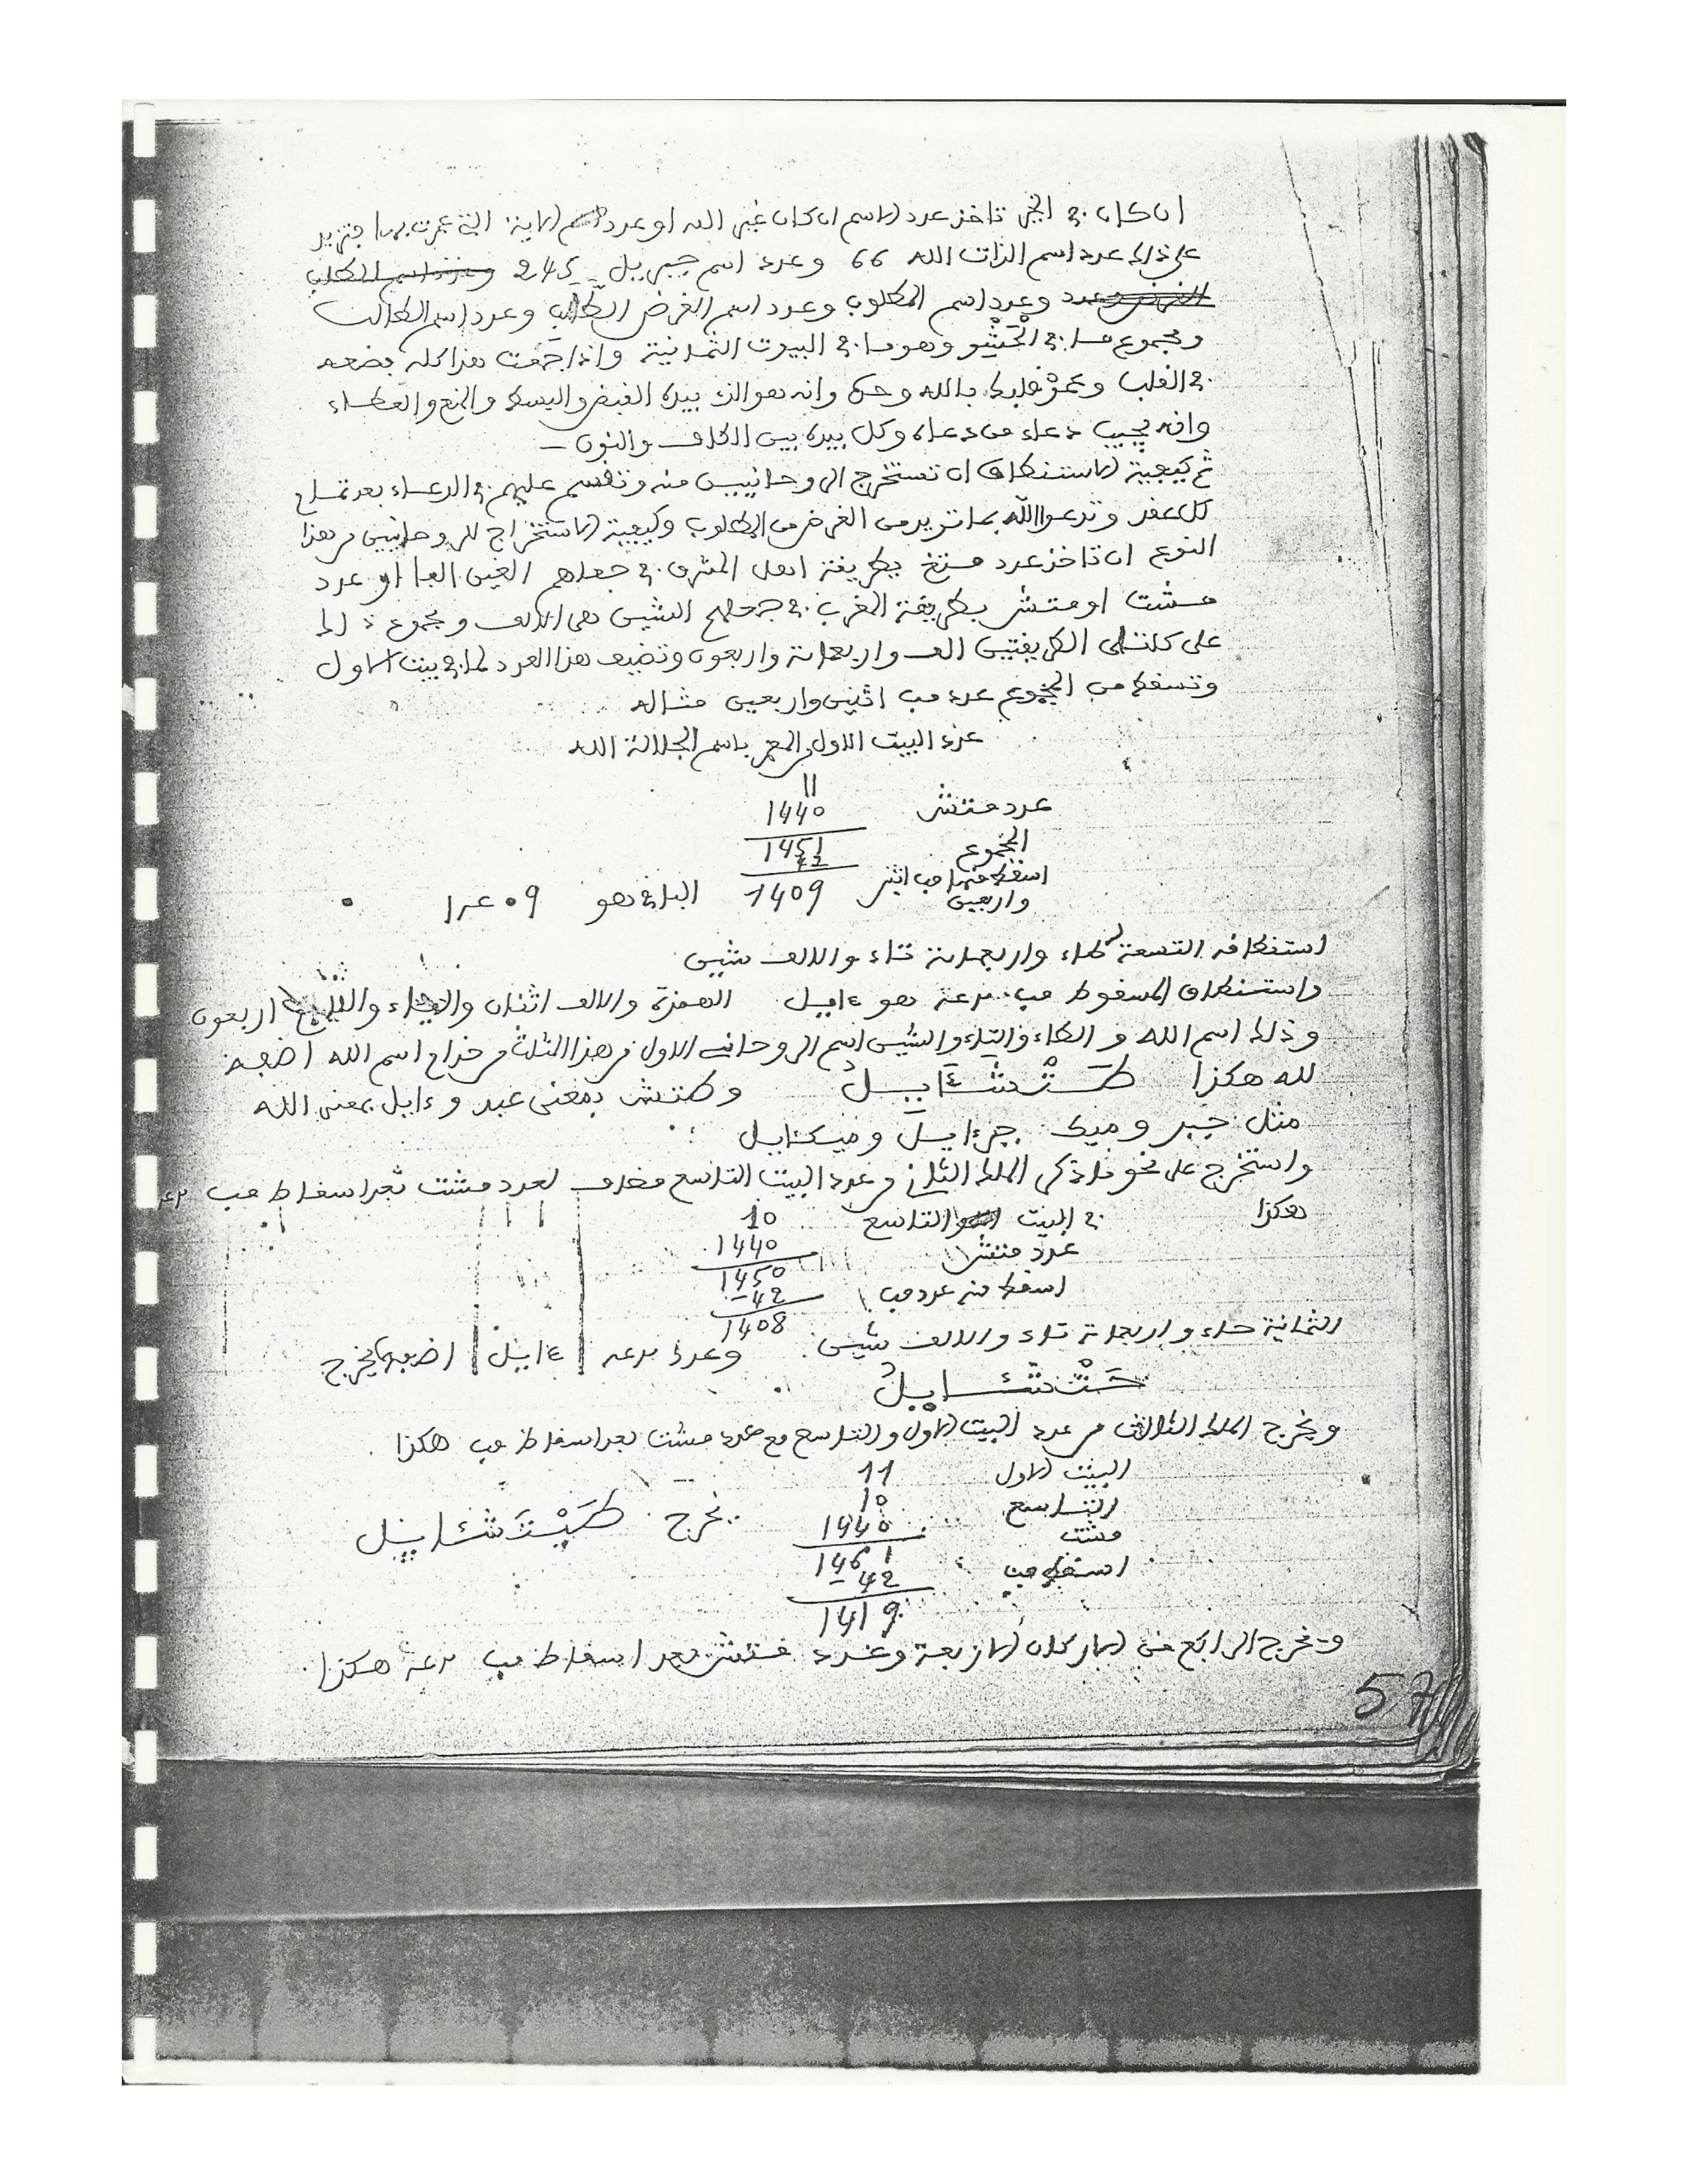 ان كان في الخير تاخذ عدد الاسم ان كان غير الله او عدد الاية التي عمرت بها وتزيد
على ذلك عدد اسم الذات الله 66 وعدد اسم جبريل 245
وعدد اسم المطلوب وعدد اسم الغرض وعدد اسم الطالب
ومجموع ما في الحشو وهو ما في البيوت الثمانية واذا جمعت هذا كله بضعه
في القلب وعمر قلبك بالله وحده وانه هو الذي بيده القبض والبسط والمنع والعطاء
وانه يجيب دعاء من دعاه وكل بيده بين الكاف والنون
ثم كيفية الاستنطاق ان تستخرج الروحانيين منه وتقسم عليهم في الدعاء بعد تمام
كل عقد وتدعوا الله بما تريد من الغرض من المطلوب وكيفية الاستخراج للروحانيين من هذا
النوع ان تاخذ عدد مستغ بطريقة اهل المشرق في جعلهم الغين الفا او عدد
مشت او متش بطريقة المغرب في جعلهم الشين هي الالف ومجموع ذلك
على كلتا الطريقتين الف واربعمائة واربعون وتضيف هذا العدد لما في بيت الاول
وتسقط من المجموع عدد مب اثنين واربعين مثاله
عدد البيت الاول المعمر باسم الجلالة الله
11
عدد متش 1440
المجموع 1451
42
اسقط منها مب اثنين 1409 الباقي هو 09
واربعين
استنطاقه التسعة طاء واربعمائة تاء والالف شين
واستنطاق المسقوط مب هو ءايل الهمزة والالف اثنان والياء واللام اربعون
وذلك اسم الله و الطاء والتاء والشين اسم الروحاني الاول من هذا المثلث من اسم الله اضفه
لله هكذا طتشءايل وطتش بمعنى عبد وءايل بمعنى الله
مثل جبر وميك جبرءايل وميكئايل
واستخرج على نحو ما ذكر الملك الثاني من عدد البيت التاسع لعدد مشت بعد اسقاط مب
هكذا في البيت التاسع 10
عدد متش 1440
1450
اسقط منه عدد مب -42
1408
الثمانية حاء واربعمائة تاء والالف شين وعدد ءايل اضفه يخرج
حتشئايل
ويخرج الملك الثالث من عدد البيت الاول والتاسع مع عدد مشت بعد اسقاط مب هكذا
البيت الاول 11
التاسع 10
مشت 1440 يخرج طيتشئايل
1461
اسقط مب -42
1419
ويخرج الرابع من الاركان الاربعة وعدد متش بعد اسقاط مب هكذا
57